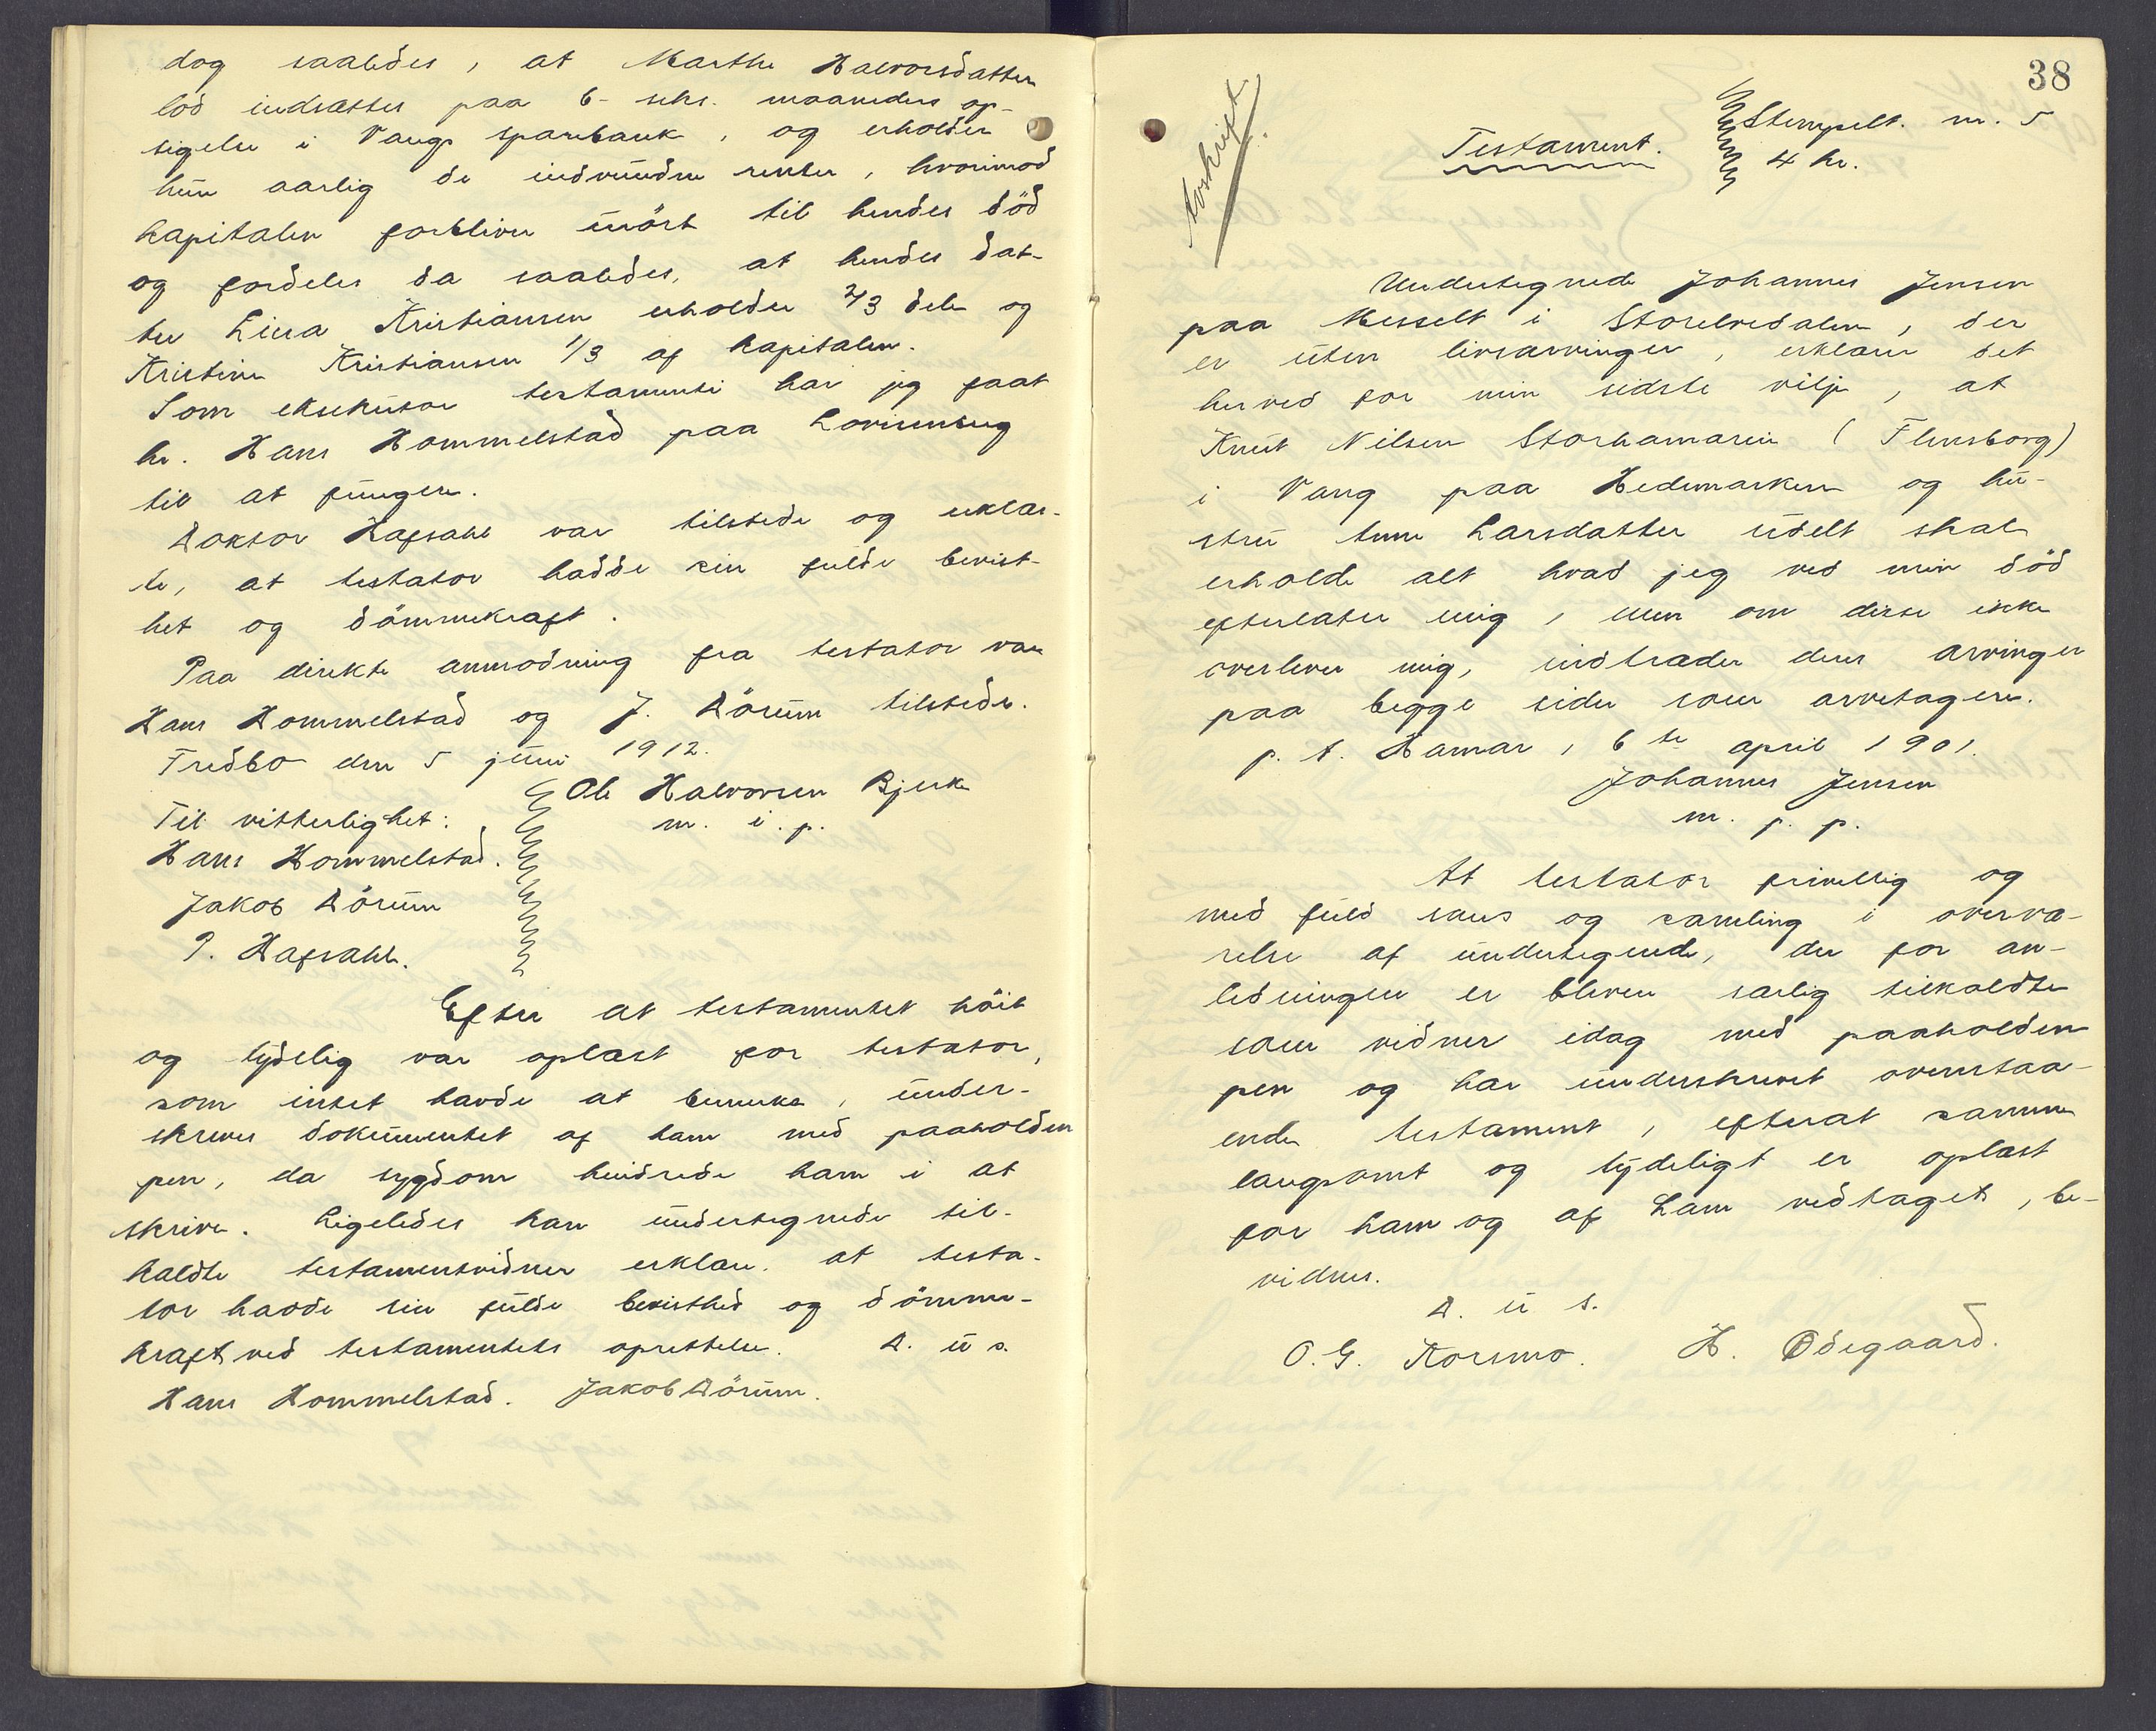 dog saaledes, at Marthe Halvorsdatters
lod indsættes paa 6- seks. maaneders op-
sigelse i Vangs sparebank, og erholder
hun aarlig de indvundne renter, hvorimod
kapitalen forbliver urört til hendes död
og fordeles da saaledes, at hendes dat-
ter Lina Kristiansen erholder 2/3 dele og
Kristine Kristiansen 1/3 af kapitalen.
Som eksekutor testamenti har jeg faat
hr. Hans Hommelstad paa Lovisenberg
til at fungere.
Doktor Hafsahl var tilstede og erklær-
te, at testator hadde sin fulde bevist-
het og dömmekraft.
Paa direkte anmodning fra testator var
Hans Hommelstad og J. Dörum tilstede.
Fredbo den 5 juni 1912.
Ole Halvorsen Bjerke
m. i. p.
Til vitterlighet:
Hans Hommelstad.
Jakob Dörum
P. Hafsahl.
Efter at testamentet höit
og tydelig var oplæst for testator,
som intet havde at bemerke, under-
skreves dokumentet af ham med paaholden
pen, da sygdom hindrede ham i at
skrive. Ligeledes kan undertegnede til-
kaldte testamentvidner erklære, at testa-
tor havde sin fulde bevisthed og dömme-
kraft ved testamentets oprettelse. D. u s.
Hans Hommelstad. Jakob Dörum.
38
Avskrift.
Testament.
Stempelt. nr. 5
4 kr.
Undertegnede Johannes Jensen
paa Messelt i Storelvedalen, der
er uten livsarvinger, erklærer det
herved for min sidste vilje, at
Knut Nilsen Storhamarein (Flensborg)
i Vang paa Hedemarken og hu-
stru Anne Larsdatter udelt skal
erholde alt hvad jeg ved min död
efterlater mig, men om disse ikke
overlever mig, indtræder deres arvinger
paa begge sider som arvetagere.
p. t. Hamar, 6te april 1901.
Johannes Jensen
m. p. p.
At testator frivillig og
med fuld sans og samling i overvæ-
relse af undertegnede, der for an-
ledningen er bleven særlig tilkaldte
som vidner idag med paaholden
pen og har underskrevet ovenstaa-
ende testament, efterat samme
langsomt og tydeligt er oplæst
for ham og af ham vedtaget, be-
vidnes.
D. u s.
O. G. Korsmo. H. Ödegaard.